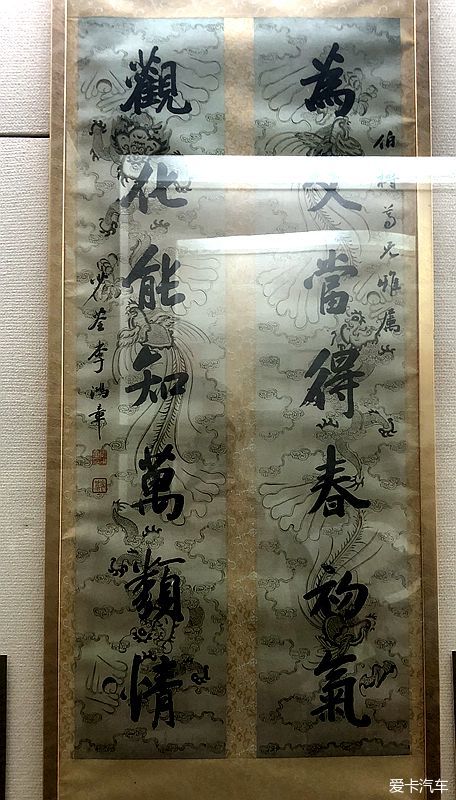 為文當得春初氣
伯𣗳尊兄雅屬
觀化能知萬類情
少荃李鴻章
爱卡汽车